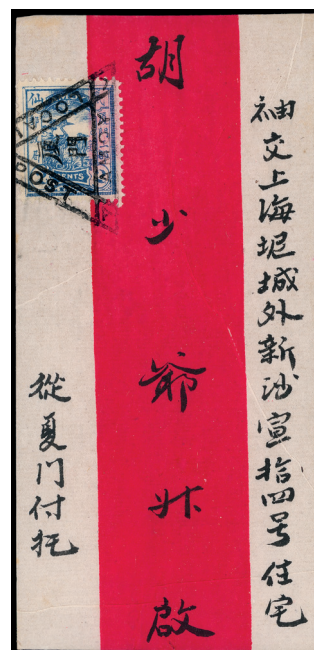 袖交上海坭城外新沙宣拾四号住宅
胡少爺
啟
從夏门付托
仙
CENTS